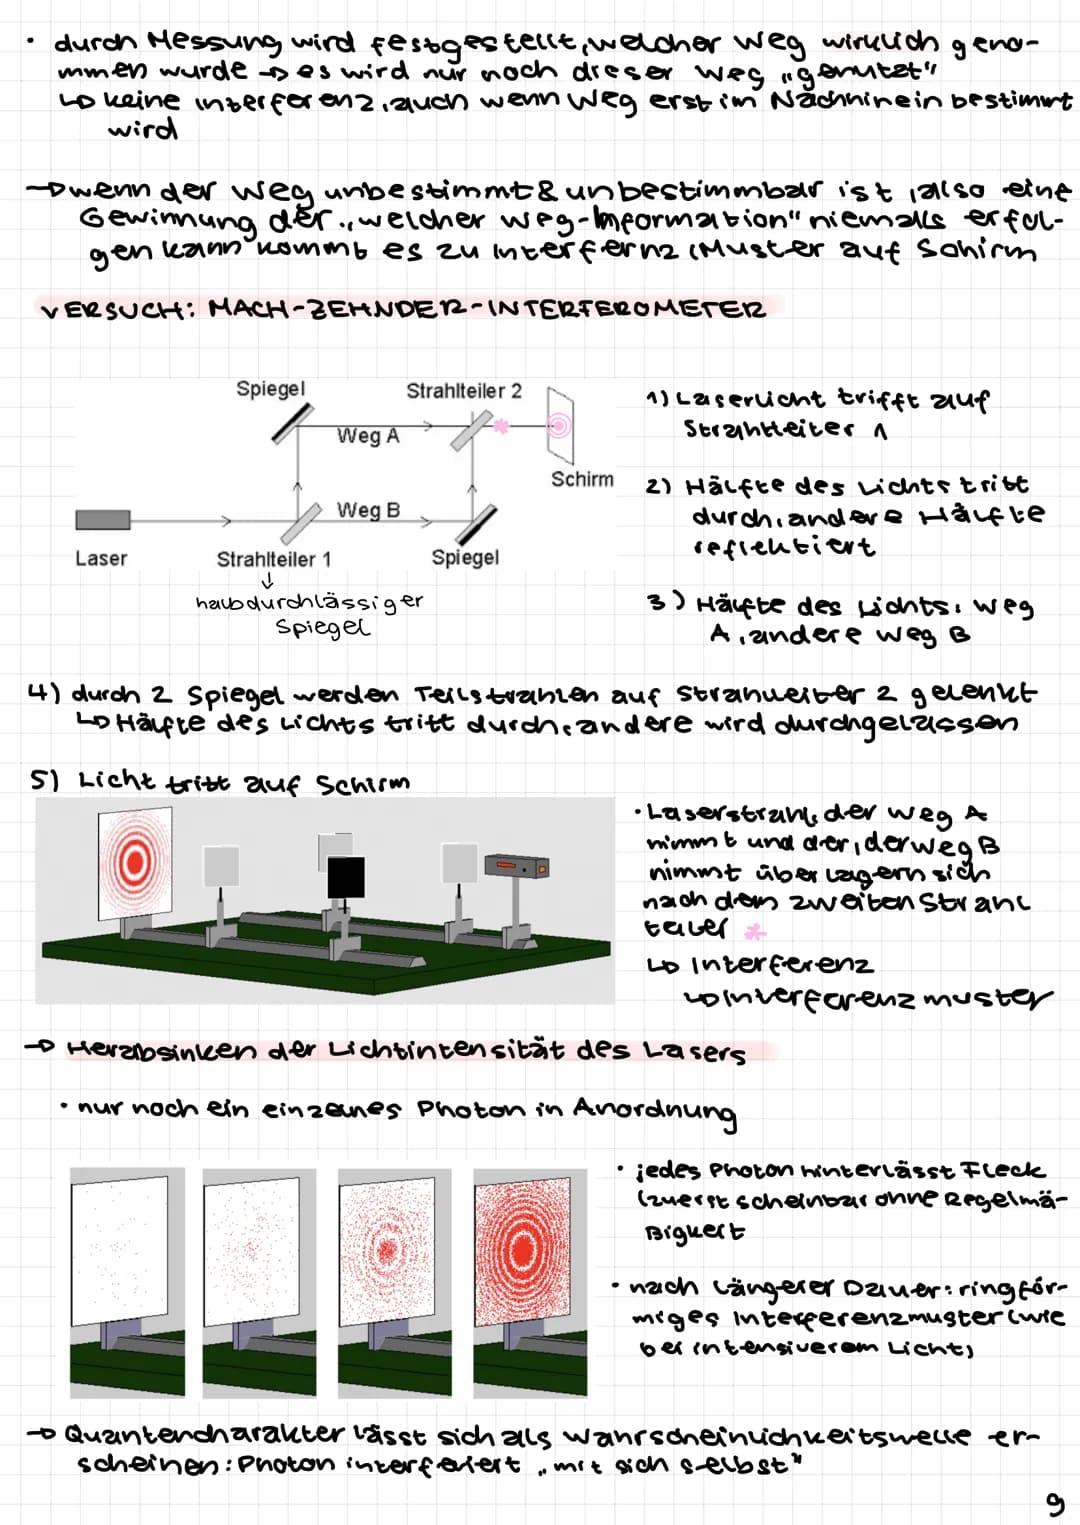 • durch Messung wird festgestellt, welcher Weg wirklich geno-
mmen wurde → es wird nur noch dieser Weg „genutzt"
↳ keine interferenz, auch wenn Weg erst im Nachhinein bestimmt
wird
→ wenn der Weg unbestimmt & unbestimmbar ist, also eine
Gewinnung der „welcher weg-Information" niemals erfol-
gen kann kommt es zu Interfernz (Muster auf Schirm
VERSUCH: MACH-ZEHNDER-INTERFEROMETER
Spiegel
Strahlteiler 2
Weg A
Schirm
Weg B
Laser
Strahlteiler 1
Spiegel
↓
halbdurchlässiger
Spiegel
1) Laserlicht trifft auf
Strahlteiler 1
2) Hälfte des Lichts tritt
durch, andere Hälfte
reflektiert
3) Hälfte des Lichts: Weg
A, andere Weg B
4) durch 2 Spiegel werden Teilstrahlen auf Strahlteiler 2 gelenkt
↳ Hälfte des Lichts tritt durch, andere wird durchgelassen
5) Licht tritt auf Schirm
• Laserstrahl, der weg A
nimmt und der, der weg B
nimmt überlagern sich
nach dem zweiten Strahl
teiler *
↳ Interferenz
↳ Interferenzmuster
→ Herabsinken der Lichtintensität des Lasers
• nur noch ein einzelnes Photon in Anordnung
• jedes Photon hinterlässt Fleck
(zuerst scheinbar ohne Regelmä-
ßigkeit
• nach längerer Dauer: ringför-
miges Interferenzmuster (wie
bei intensiverem Licht)
→ Quantencharakter lässt sich als Wahrscheinlichkeitswelle er-
scheinen: Photon interferiert „mit sich selbst"
9